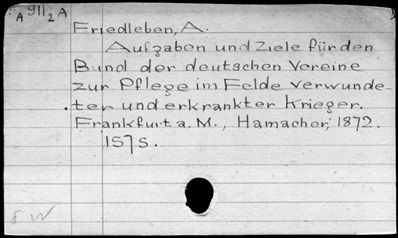 A 911 2 A
Friedleben, A.
Aufgaben und Ziele für den
Bund der deutschen Vereine
zur Pflege im Felde verwunde-
ter und erkrankter Krieger.
Frankfurt a. M., Hamacher, 1872.
157 S.